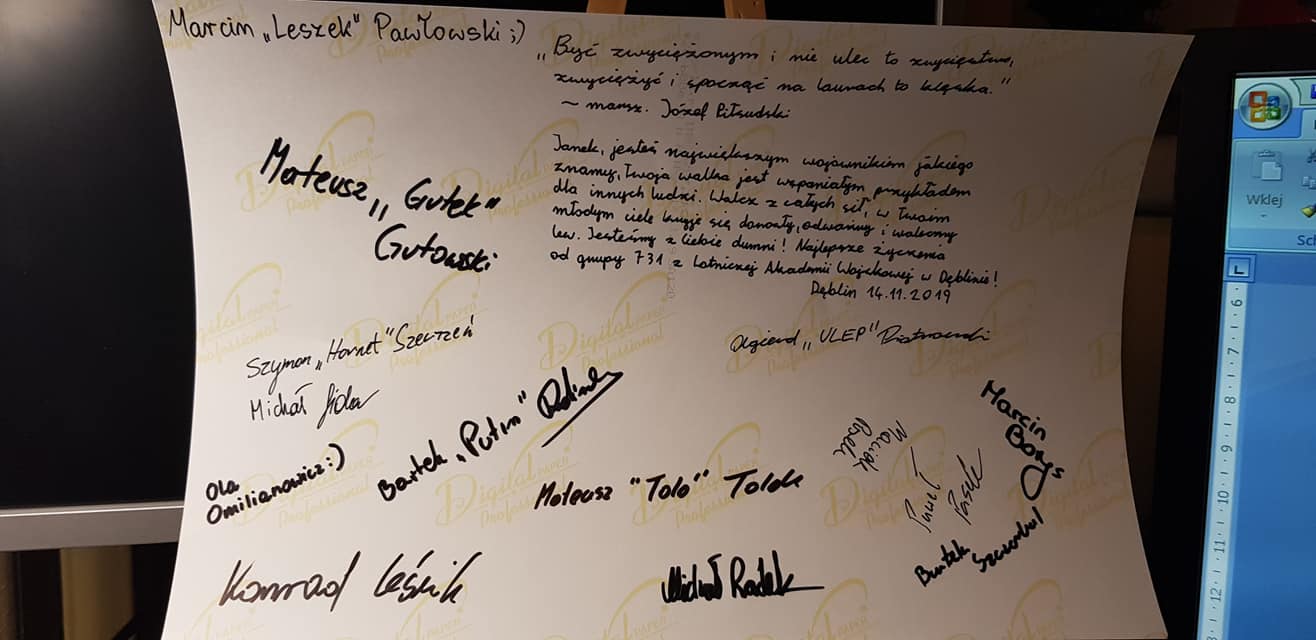 Marcin „Leszek" Pawłowski ;)
„Być zwyciężonym i nie ulec to zwycięstwo,
zwyciężyć i spocząć na laurach to klęska."
~ marsz. Józef Piłsudski
Janek, jesteś największym wojownikiem jakiego
znamy, Twoja walka jest wspaniałym przykładem
dla innych ludzi. Walcz z całych sił, w Twoim
młodym ciele kryje się dorosły, odważny i waleczny
lew. Jesteśmy z Ciebie dumni! Najlepsze życzenia
od grupy 731 z Lotniczej Akademii Wojskowej w Dęblinie!
Dęblin 14.11.2019
Mateusz „Gutek"
Gutowski
Olgierd „ULEP" Piotrowski
Szymon „Hornet"
Michał
Bartek „Putin"
Ola
Omilianowicz :)
Mateusz "Tolo"
Marcin
Borys
Maciek
Paweł
Bartek
Konrad Leśik
Michał Radek
Digital PAPER
Professional
Wklej
6 7 8 9 10 11 12